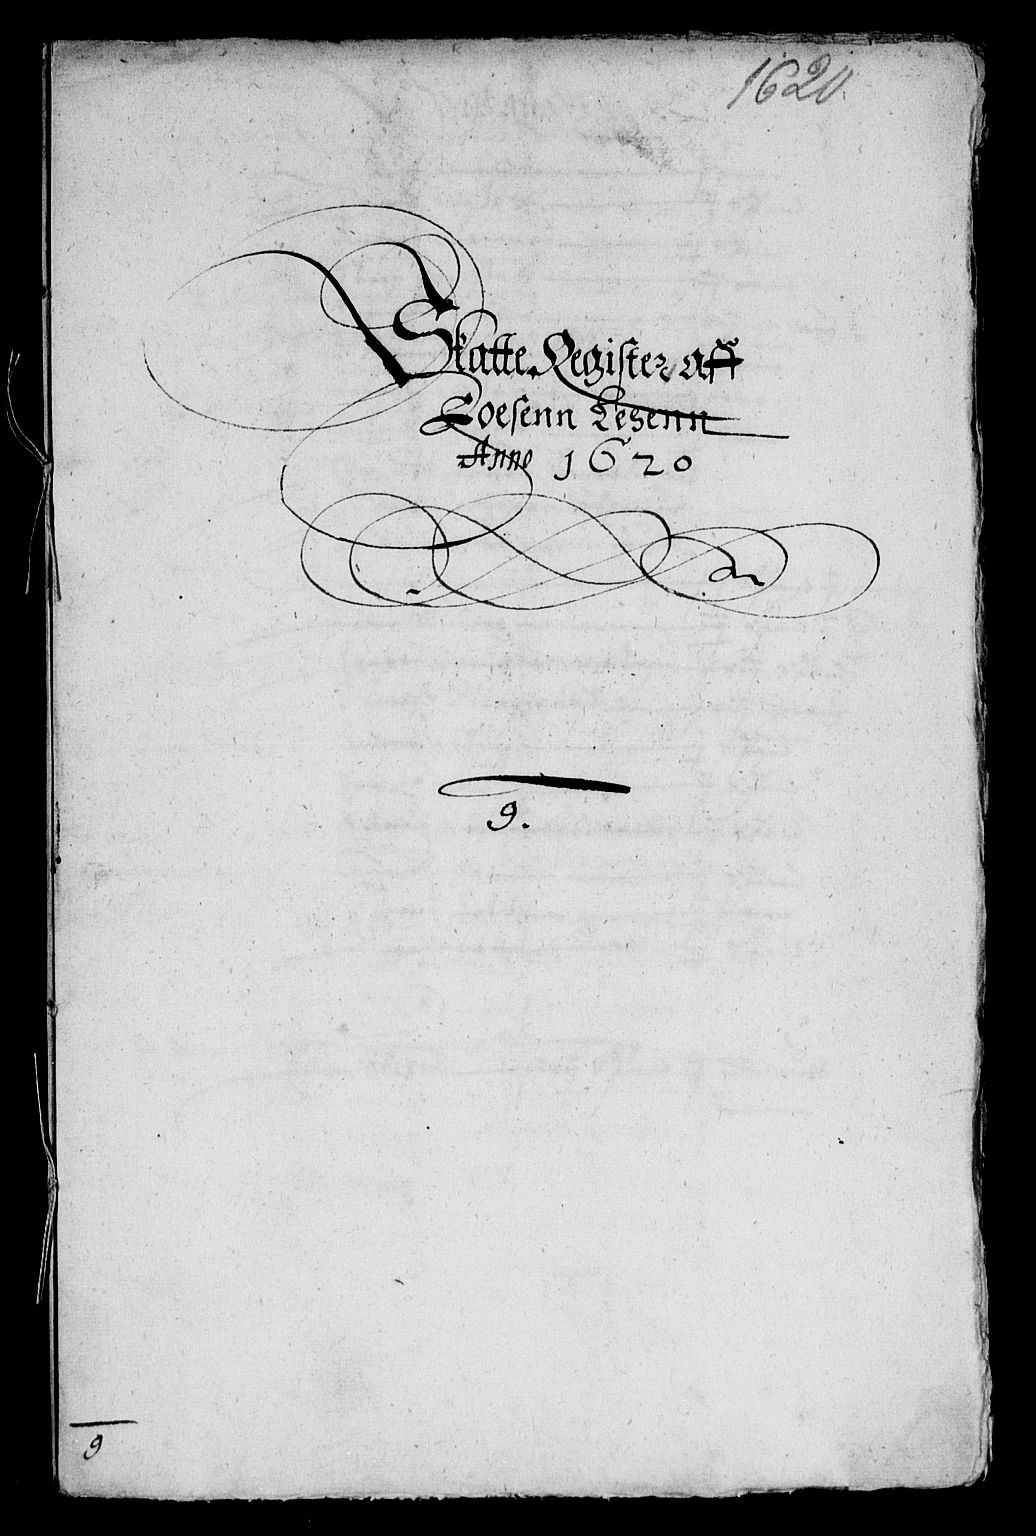 1620.
Skatte Register aff
Loesenn Lehenn
Anno 1620
9.
9